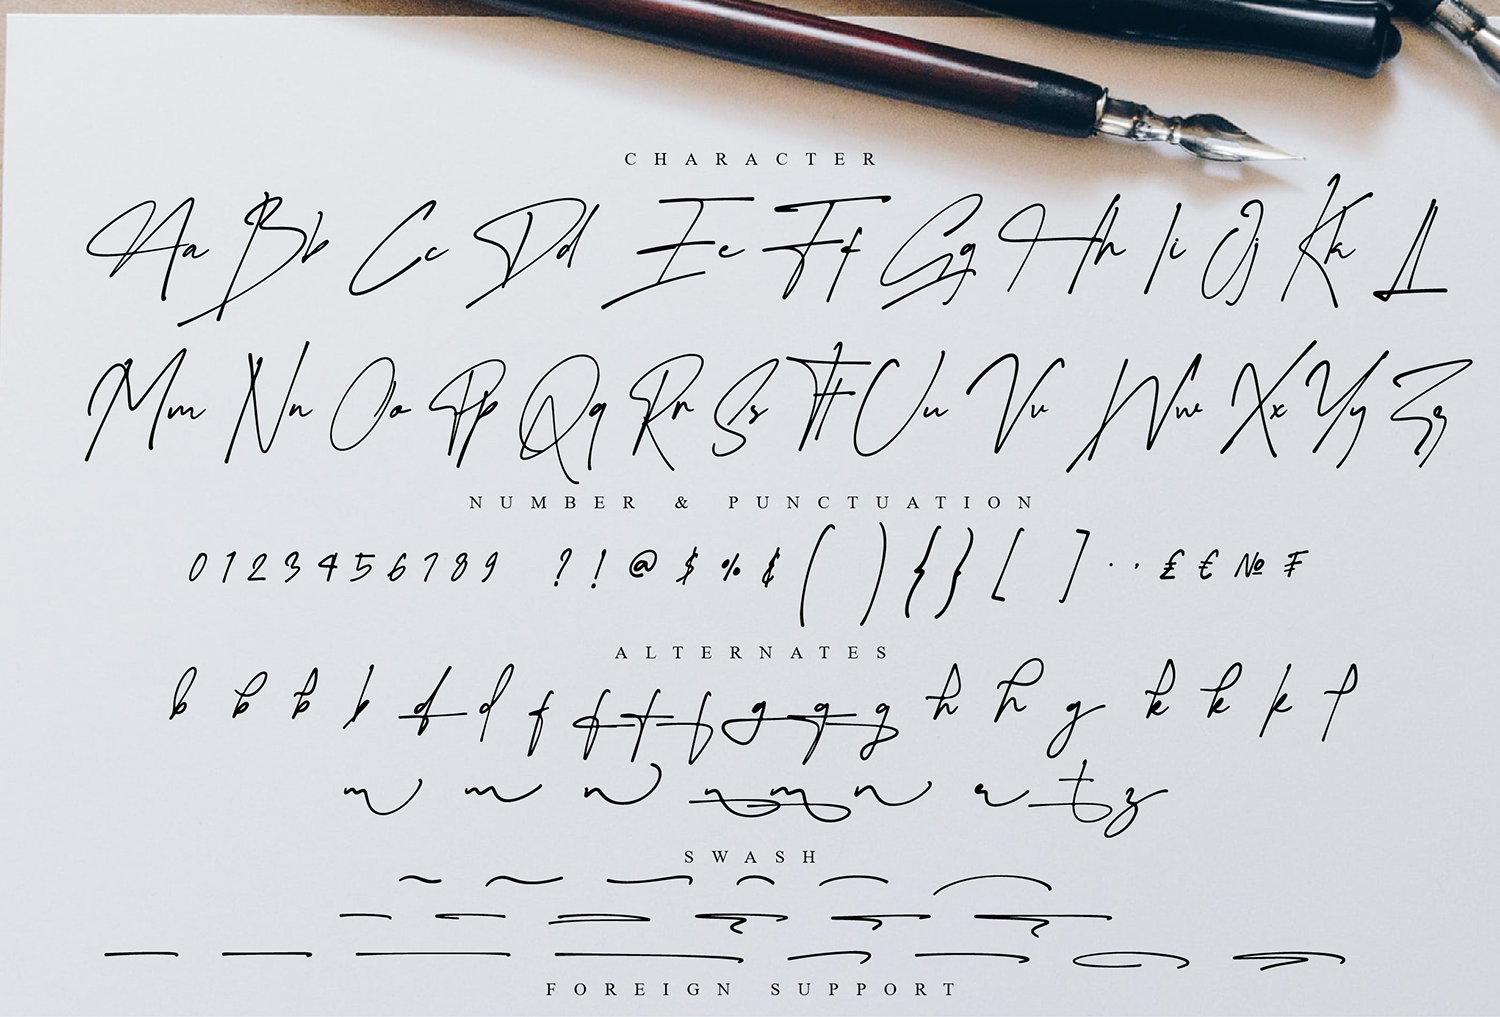 CHARACTER
Aa Bb Cc Dd Ee Ff Gg Hh Ii Jj Kk Ll
Mm Nn Oo Pp Qq Rr Ss Tt Uu Vv Ww Xx Yy Zz
NUMBER & PUNCTUATION
0 1 2 3 4 5 6 7 8 9 ? ! @ $ % ¢ ( ) { } [ ] · · £ € № ₣
ALTERNATES
b b b b d d f f f f g g g h h g k k k l
m m n n m n r t z
SWASH
FOREIGN SUPPORT